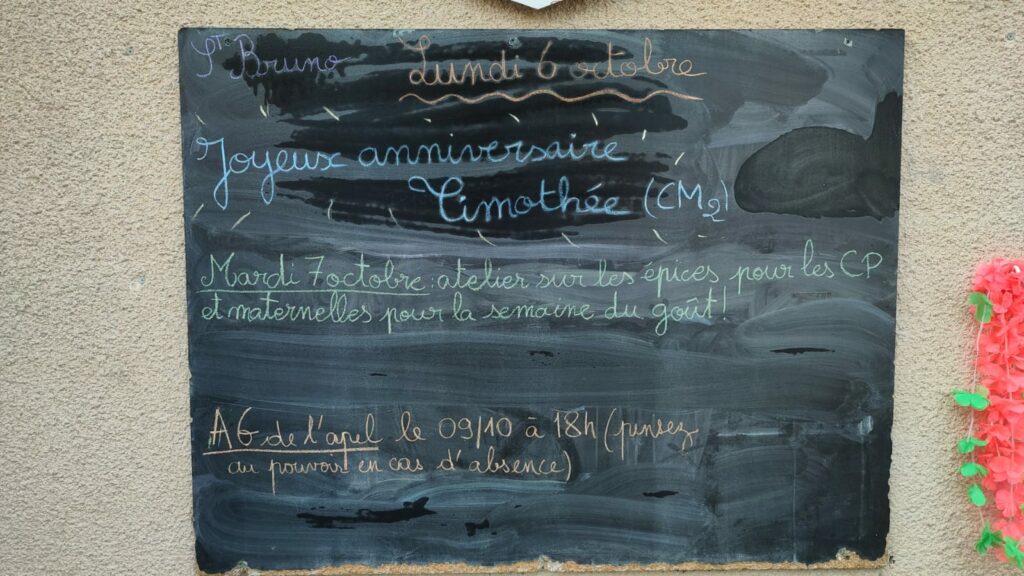 St Bruno
Lundi 6 octobre
Joyeux anniversaire
Timothée (CM2)
Mardi 7 octobre : atelier sur les épices pour les CP
et maternelles pour la semaine du goût !
AG de l'apel le 09/10 à 18h (pensez
au pouvoir en cas d'absence)